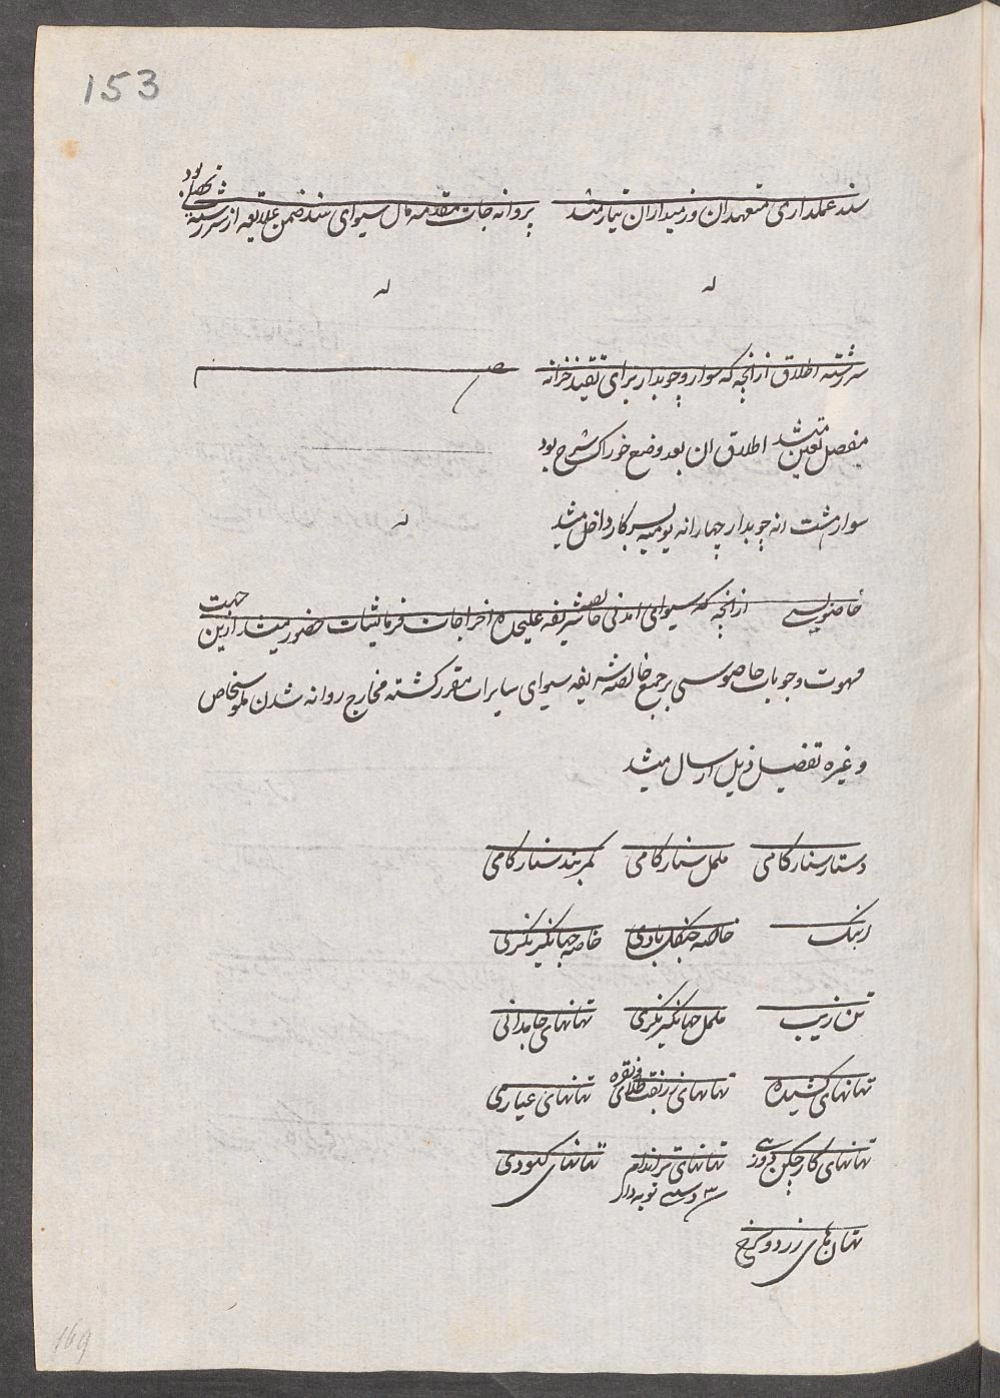 153
سند عملداری متعهدان و زمینداران تیار میشد پروانه جات مقدمه مال سیوای سند ضمن علاقعه از سررشته بود
له له
سررشته اطلاق ازانجه که سوار و چوبدار برای تقید خزانه
مفصل تعین میشد اطلاق ان بعد وضع خوراک بشرح بود
سوار هشت انه چوبدار چهارانه یومیه بسرکار داخل میشد له
خاصنویسی ازانجه که سیوای امدنی خالصه شریفه علیحده اخراجات فرمائیشات حضور میشد ازین جهت
وجوبات خاصنویسی بر جمع خالصه شریفه سیوای سایرات مقرر گشته مخارج روانه شدن ملبوسخاص
و غیره تفصیل ذیل ارسال میشد
دستار سنارکامی ململ سنارکامی کمربند سنارکامی
خاصه جنکلبادی خاصه جهانکیرنکری
تن زیب ململ جهانکیرنکری تهانهای جامدانی
تهانهای کشیده تهانهای زربفت طلای و نقره تهانهای
تهانهای کار چکن دوزی تهانهای سراندام تهانهای کبودی
تهان های زرد و سرخ
169